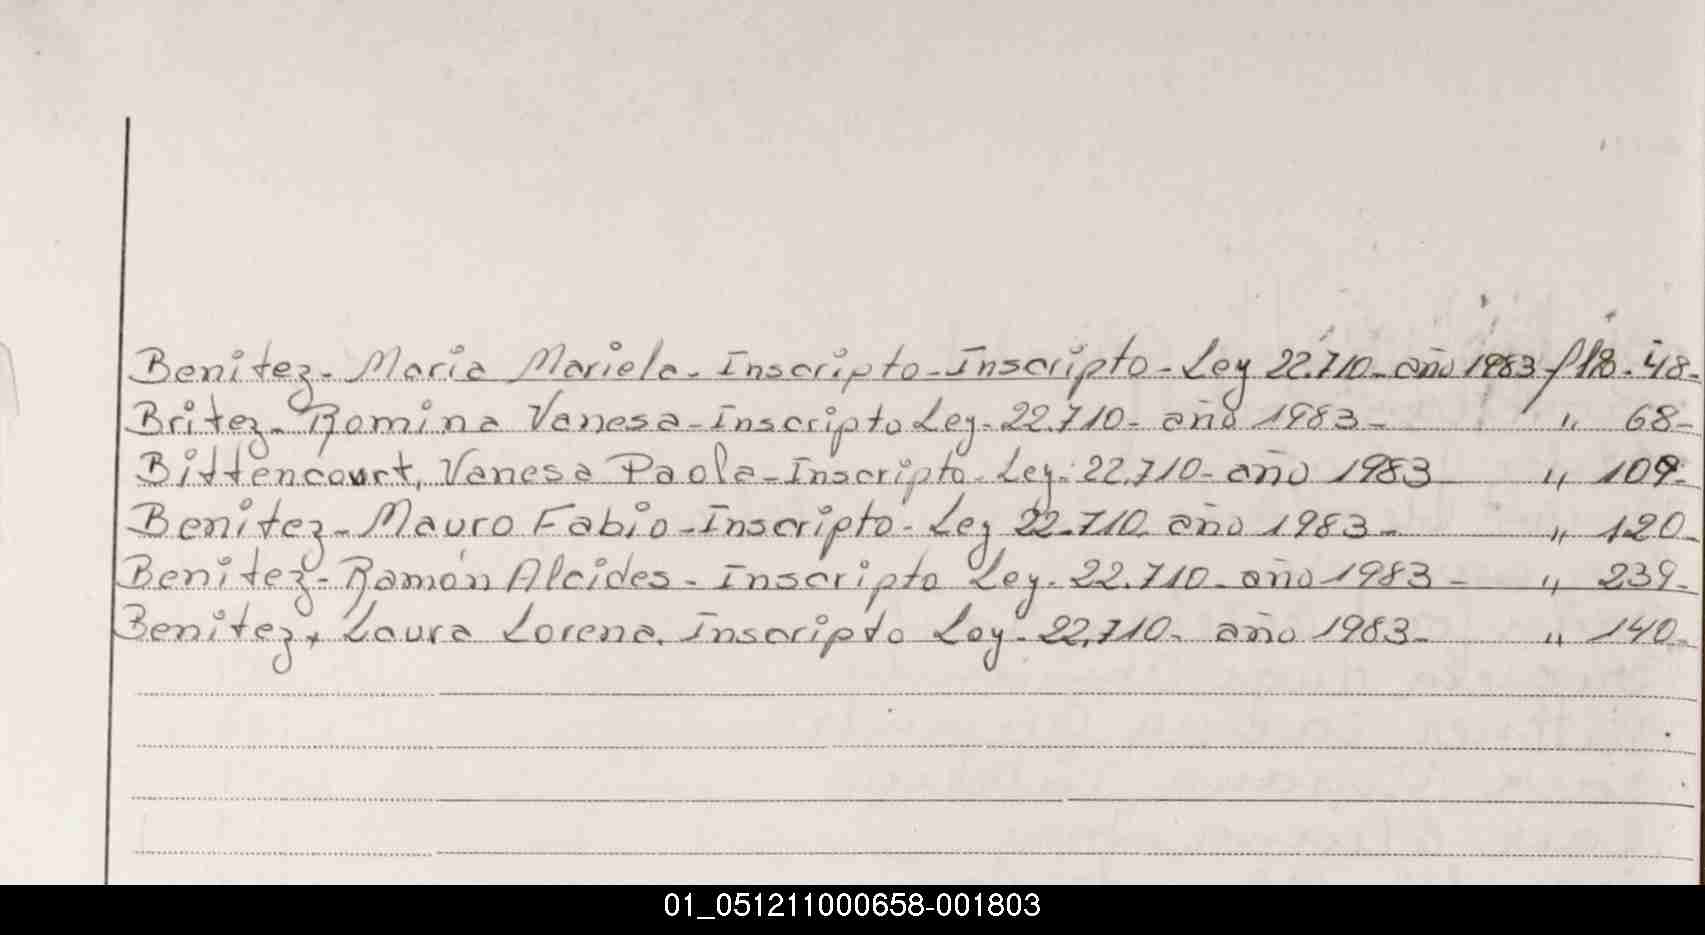 Benitez - Maria Mariela - Inscripto - Inscripto - Ley 22.710 - año 1983 - 48 -
Britez - Romina Vanesa - Inscripto Ley - 22.710 - año 1983 - " 68 -
Bittencourt, Vanesa Paola - Inscripto - Ley - 22.710 - año 1983 " 109 -
Benitez - Mauro Fabio - Inscripto - Ley 22.710 año 1983 - " 120 -
Benitez - Ramón Alcides - Inscripto Ley - 22.710 - año 1983 - " 239 -
Benitez, Laura Lorena. Inscripto Ley - 22.710 - año 1983 - " 140 -
01_051211000658-001803